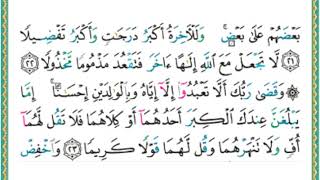 بَعْضَهُمْ عَلَىٰ بَعْضٍ ۚ وَلَلْآخِرَةُ أَكْبَرُ دَرَجَاتٍ وَأَكْبَرُ تَفْضِيلًا
﴿٢١﴾ لَّا تَجْعَلْ مَعَ اللَّهِ إِلَٰهًا ءَاخَرَ فَتَقْعُدَ مَذْمُومًا مَّخْذُولًا ﴿٢٢﴾
۞ وَقَضَىٰ رَبُّكَ أَلَّا تَعْبُدُوا إِلَّا إِيَّاهُ وَبِالْوَالِدَيْنِ إِحْسَٰنًا ۚ إِمَّا
يَبْلُغَنَّ عِندَكَ الْكِبَرَ أَحَدُهُمَا أَوْ كِلَاهُمَا فَلَا تَقُل لَّهُمَا
أُفٍّ وَلَا تَنْهَرْهُمَا وَقُل لَّهُمَا قَوْلًا كَرِيمًا ﴿٢٣﴾ وَاخْفِضْ